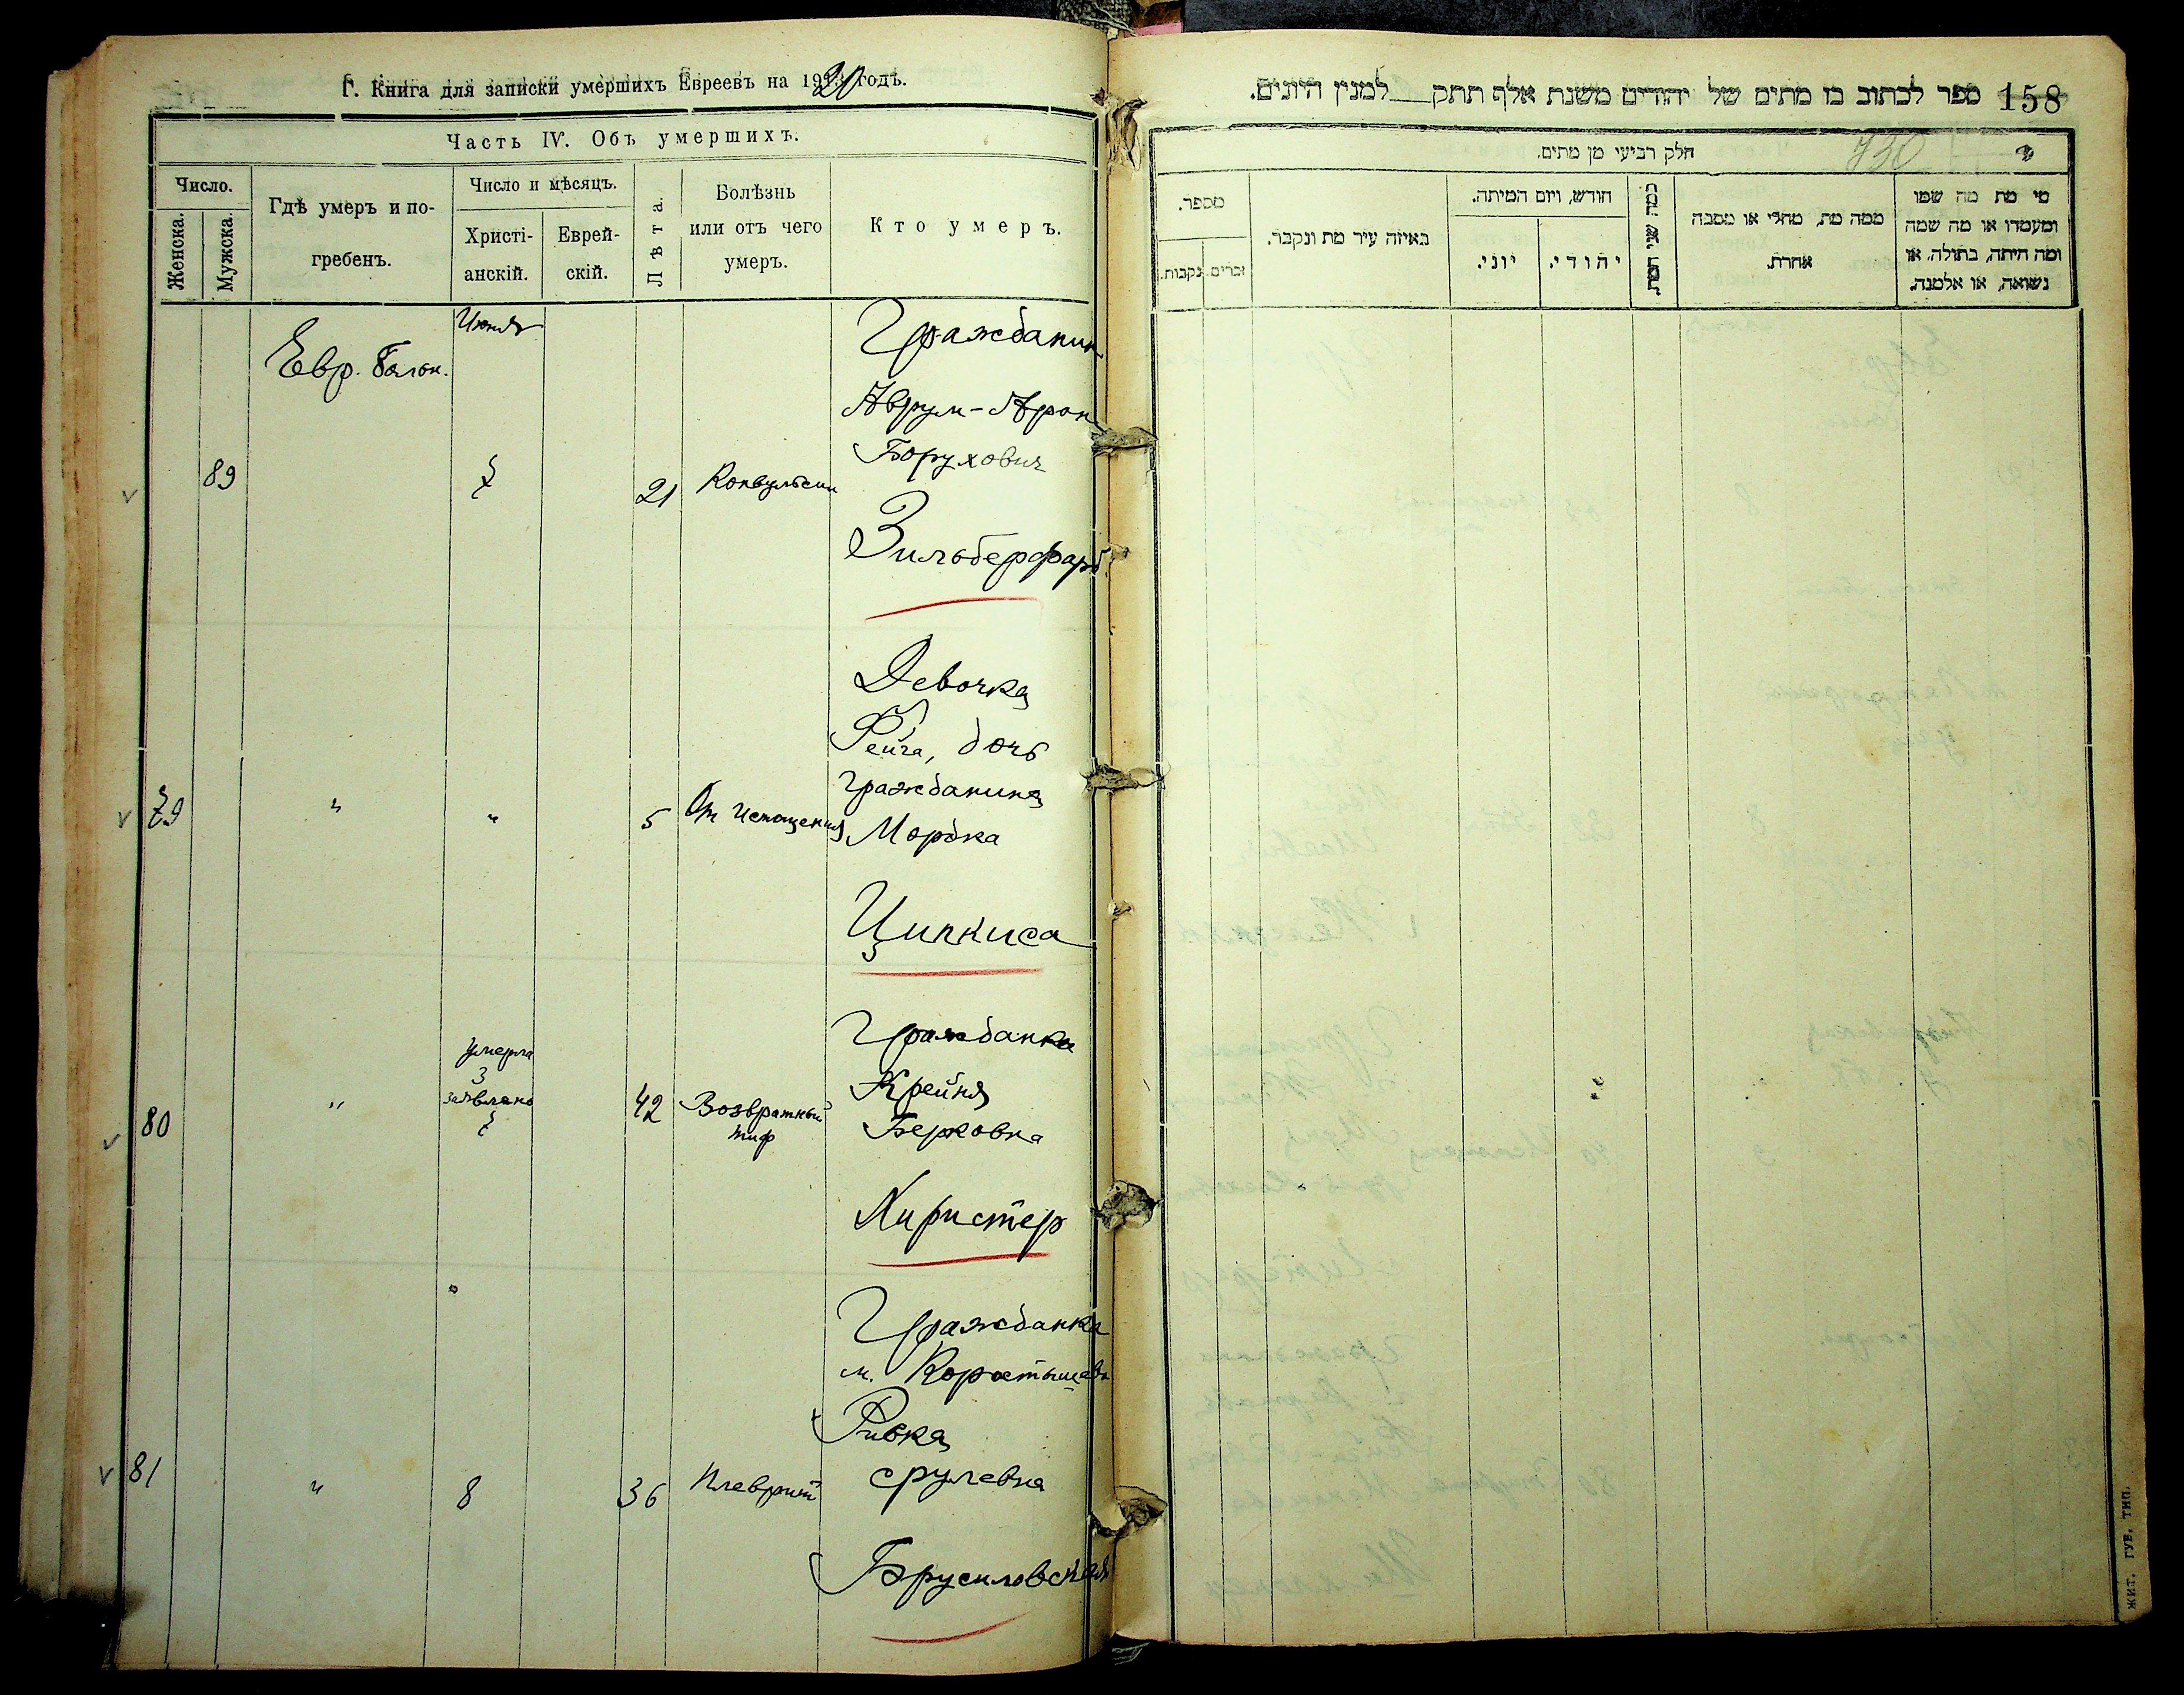 Г. Книга для записки умершихъ Евреевъ на 1920 годъ.
Часть IV. Объ умершихъ.
Число.
Женска.
Мужска.
Гдѣ умеръ и по-
гребенъ.
Число и мѣсяцъ.
Христі-
анскій.
Еврей-
скій.
Лѣта.
Болѣзнь
или отъ чего
умеръ.
Кто умеръ.
89
Евр.
Июня
7
21
Конвульсии
Гражданин
Аврум-Арон
Борухович
Зильберфарб
79
"
"
5
От истощения
Девочка
Фейга, дочь
гражданина
Мордка
Ципкиса
80
"
умерла
3
заявлено
7
42
Возвратный
тиф
Гражданка
Крейня
Берковна
Хиристер
81
"
8
36
Плеврит
Гражданка
м. Коростышева
Ривка
Срулевна
Брусиловская
158
ספר לכתוב בו מתים של יהודים משנת אלף תתק למנין היונים.
730
חלק רביעי מן מתים.
מספר.
נקבות.
זכרים.
באיזה עיר מת ונקבר.
חודש, ויום המיתה.
יוני.
יהודי.
כמה שני המת
ממה מת, מחלי או מסבה
אחרת.
מי מת מה שמו
ומעמדו או מה שמה
ומה היתה, בתולה, או
נשואה, או אלמנה.
ЖИТ. ГУБ. ТИП.